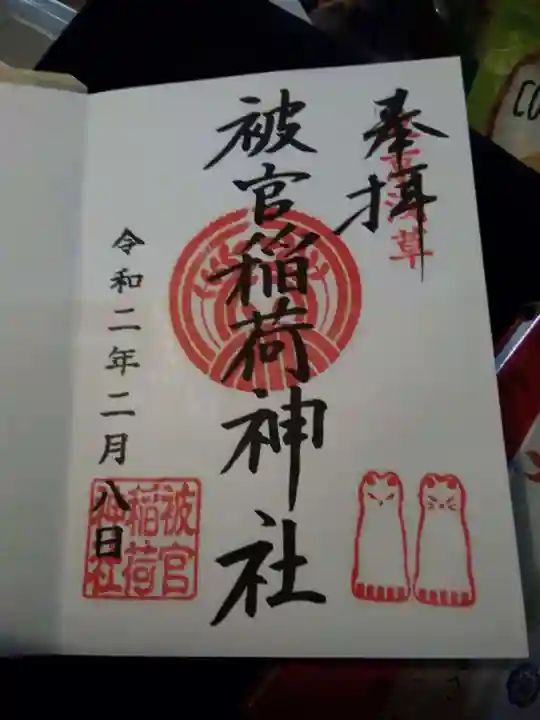 奉拝
浅草
被官稲荷神社
令和二年二月八日
被官
稲荷
神社
CO